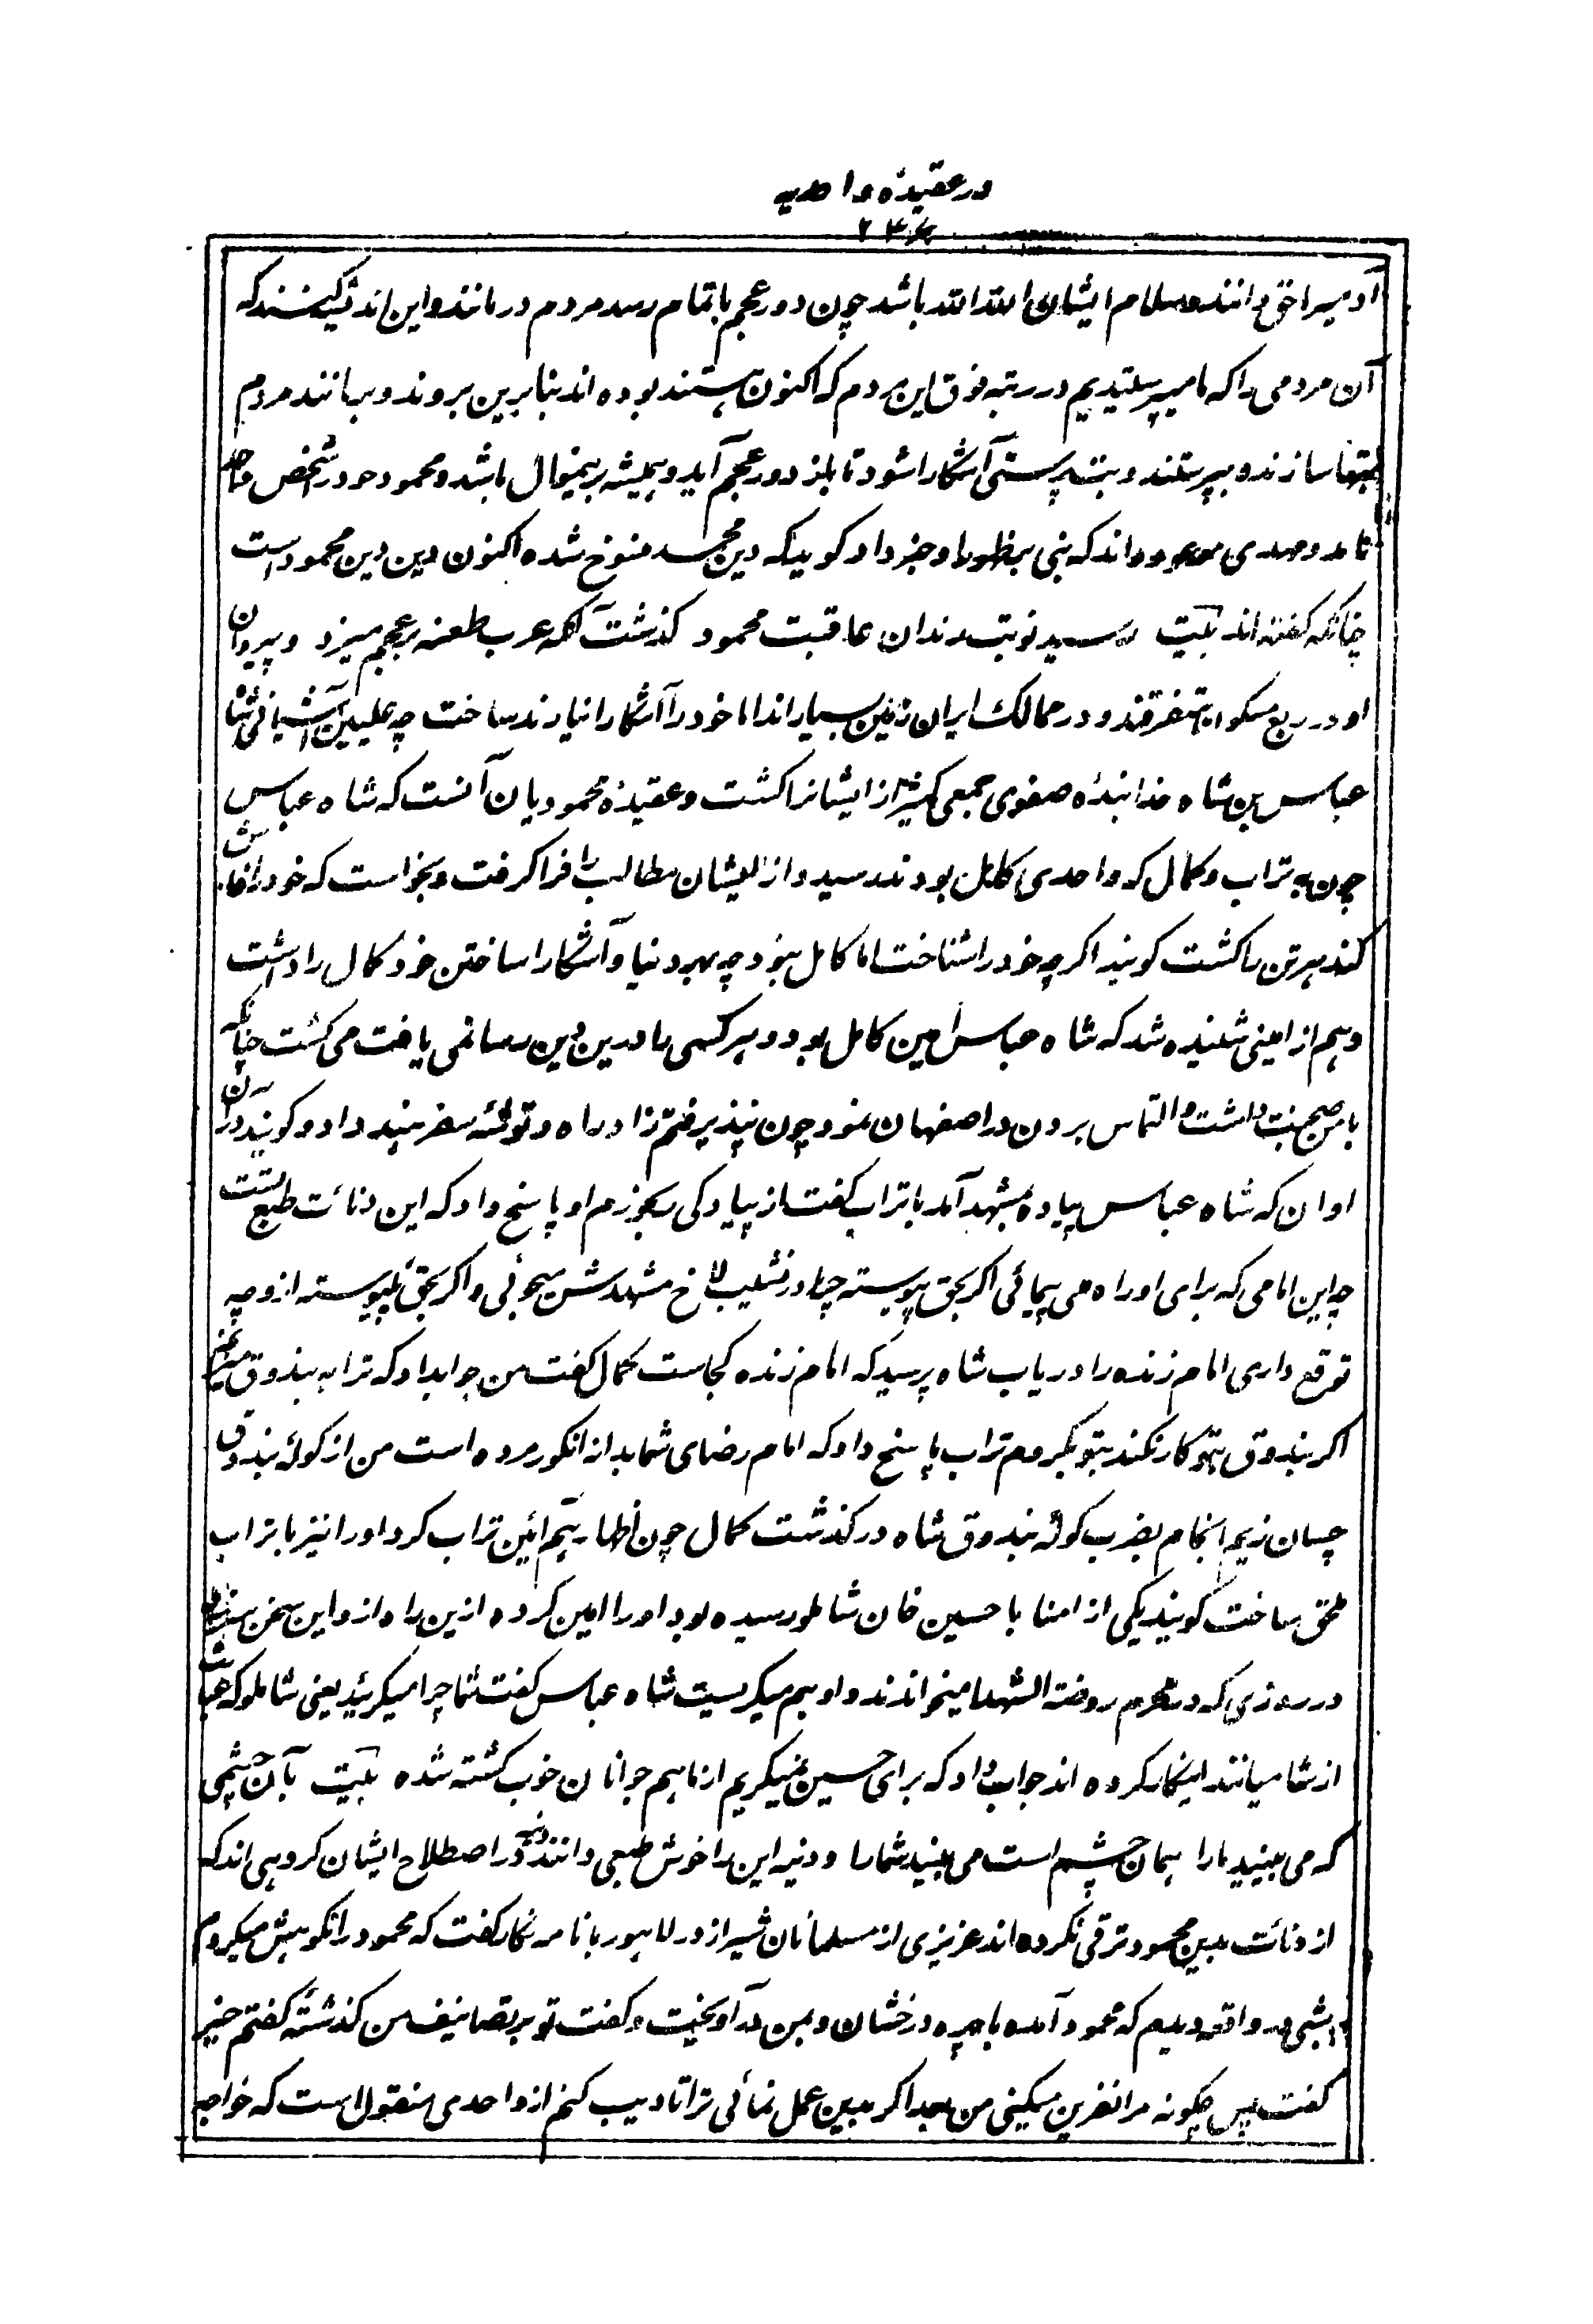 در عقیدهٔ واحدیه
۲۴۶
آدمیرا حق دانند و سلام ایشان الله الله باشد چون دور عجم باتمام رسد مردم در مانند و این اندیشه کنند که
آن مردمی را که ما میپرستیدیم در رتبه فوق این مردم که اکنون هستند بوده اند بنابرین بروند و بمانند مردم
بتها سازند و بپرستند و بت پرستی آشکارا شود تا باز دور عجم آید و همیشه برینمنوال باشد و محمود خود را شخص واحد
نامد و مهدی موعود داند که نبی بظهور او خبر داد گویند که دین محمد منسوخ شده اکنون دین دین محمود است
چنانکه گفته اند بیت رسید نوبت رندان عاقبت محمود گذشت آنکه عرب طعنه بر عجم میزد و پیروان
او در ربع مسکون متفرقند و در ممالک ایران زمین بسیار اند اما خود را آشکارا نیارند ساخت چه علیین آشیانی شاه
عباس بن شاه خدابندهٔ صفوی جمعی کثیر از ایشانرا کشت و عقیدهٔ محمودیان آنست که شاه عباس
چون به تراب و کمال که واحدی کامل بودند رسید و از ایشان مطالب را فرا گرفت و بخواست که خود را فاش
کند هر تن را کشت گویند اگرچه خود را شناخت اما کامل نبود چه بهر دنیا و آشکارا ساختن خود کمال را داشت
و هم از امینی شنیده شد که شاه عباس امین کامل بود و هر کسی را درین دین رسا نمی یافت می کشت چنانکه
با من صحبت داشت و التماس بردن در اصفهان نمود چون نپذیرفتم زاد راه و توشه سفر هند داد و گویند در آن
اوان که شاه عباس پیاده بمشهد آمد با تراب گفت از پیادگی رنجورم او پاسخ داد که این دنائت طبع تست
چه این امامی که برای او راه می پیمائی اگر بحق پیوسته چرا در نشیب لاخ مشهدش میجوئی و اگر بحق نپیوسته از و چه
توقع داری امام زنده را دریاب شاه پرسید که امام زنده کجاست کمال گفت من جوابداد که ترا به بندوق میزنم
اگر بندوق بتو کار نکند بتو بگروم تراب پاسخ داد که امام رضای شما بدانهٔ انگور مرده است من از گوله بندوق
چسان زیم انجام بضرب گوله بندوق شاه در گذشت کمال چون اظهار هم آئین تراب کرد او را نیز با تراب
ملحق ساخت گویند یکی از امنا با حسین خان شاملو رسیده بود او را امین کرده ازین راه از و این سخن
در روزی که در محرم روضته الشهدا میخواندند و او هم میگریست شاه عباس گفت شما چرا میگریید یعنی شاملو که
از شامیانند اینکار کرده اند جواب داد که برای حسین نمیگریم از ما هم جوانان خوب کشته شده بیت بآن چشمی
که می بینید ما را همان چشم است می بیند شما را و دنیه این را خوش طبعی دانند و دنیه در اصطلاح ایشان گروهی اند که
از دنائت بدین محمود ترقی نکرده اند عزیزی از مسلمانان شیراز در لاهور با نامه نگار گفت که محمود را نکوهش میکردم
شبی در واقعه دیدم که محمود آمده با چهره درخشان و بمن در آویخت و گفت تو بر تصانیف من گذشتهٔ گفتم خیر
گفت پس چگونه مرا نفرین میکنی من بعد اگر بدین عمل نمائی ترا تادیب کنم از واحدی منقول است که خواجه